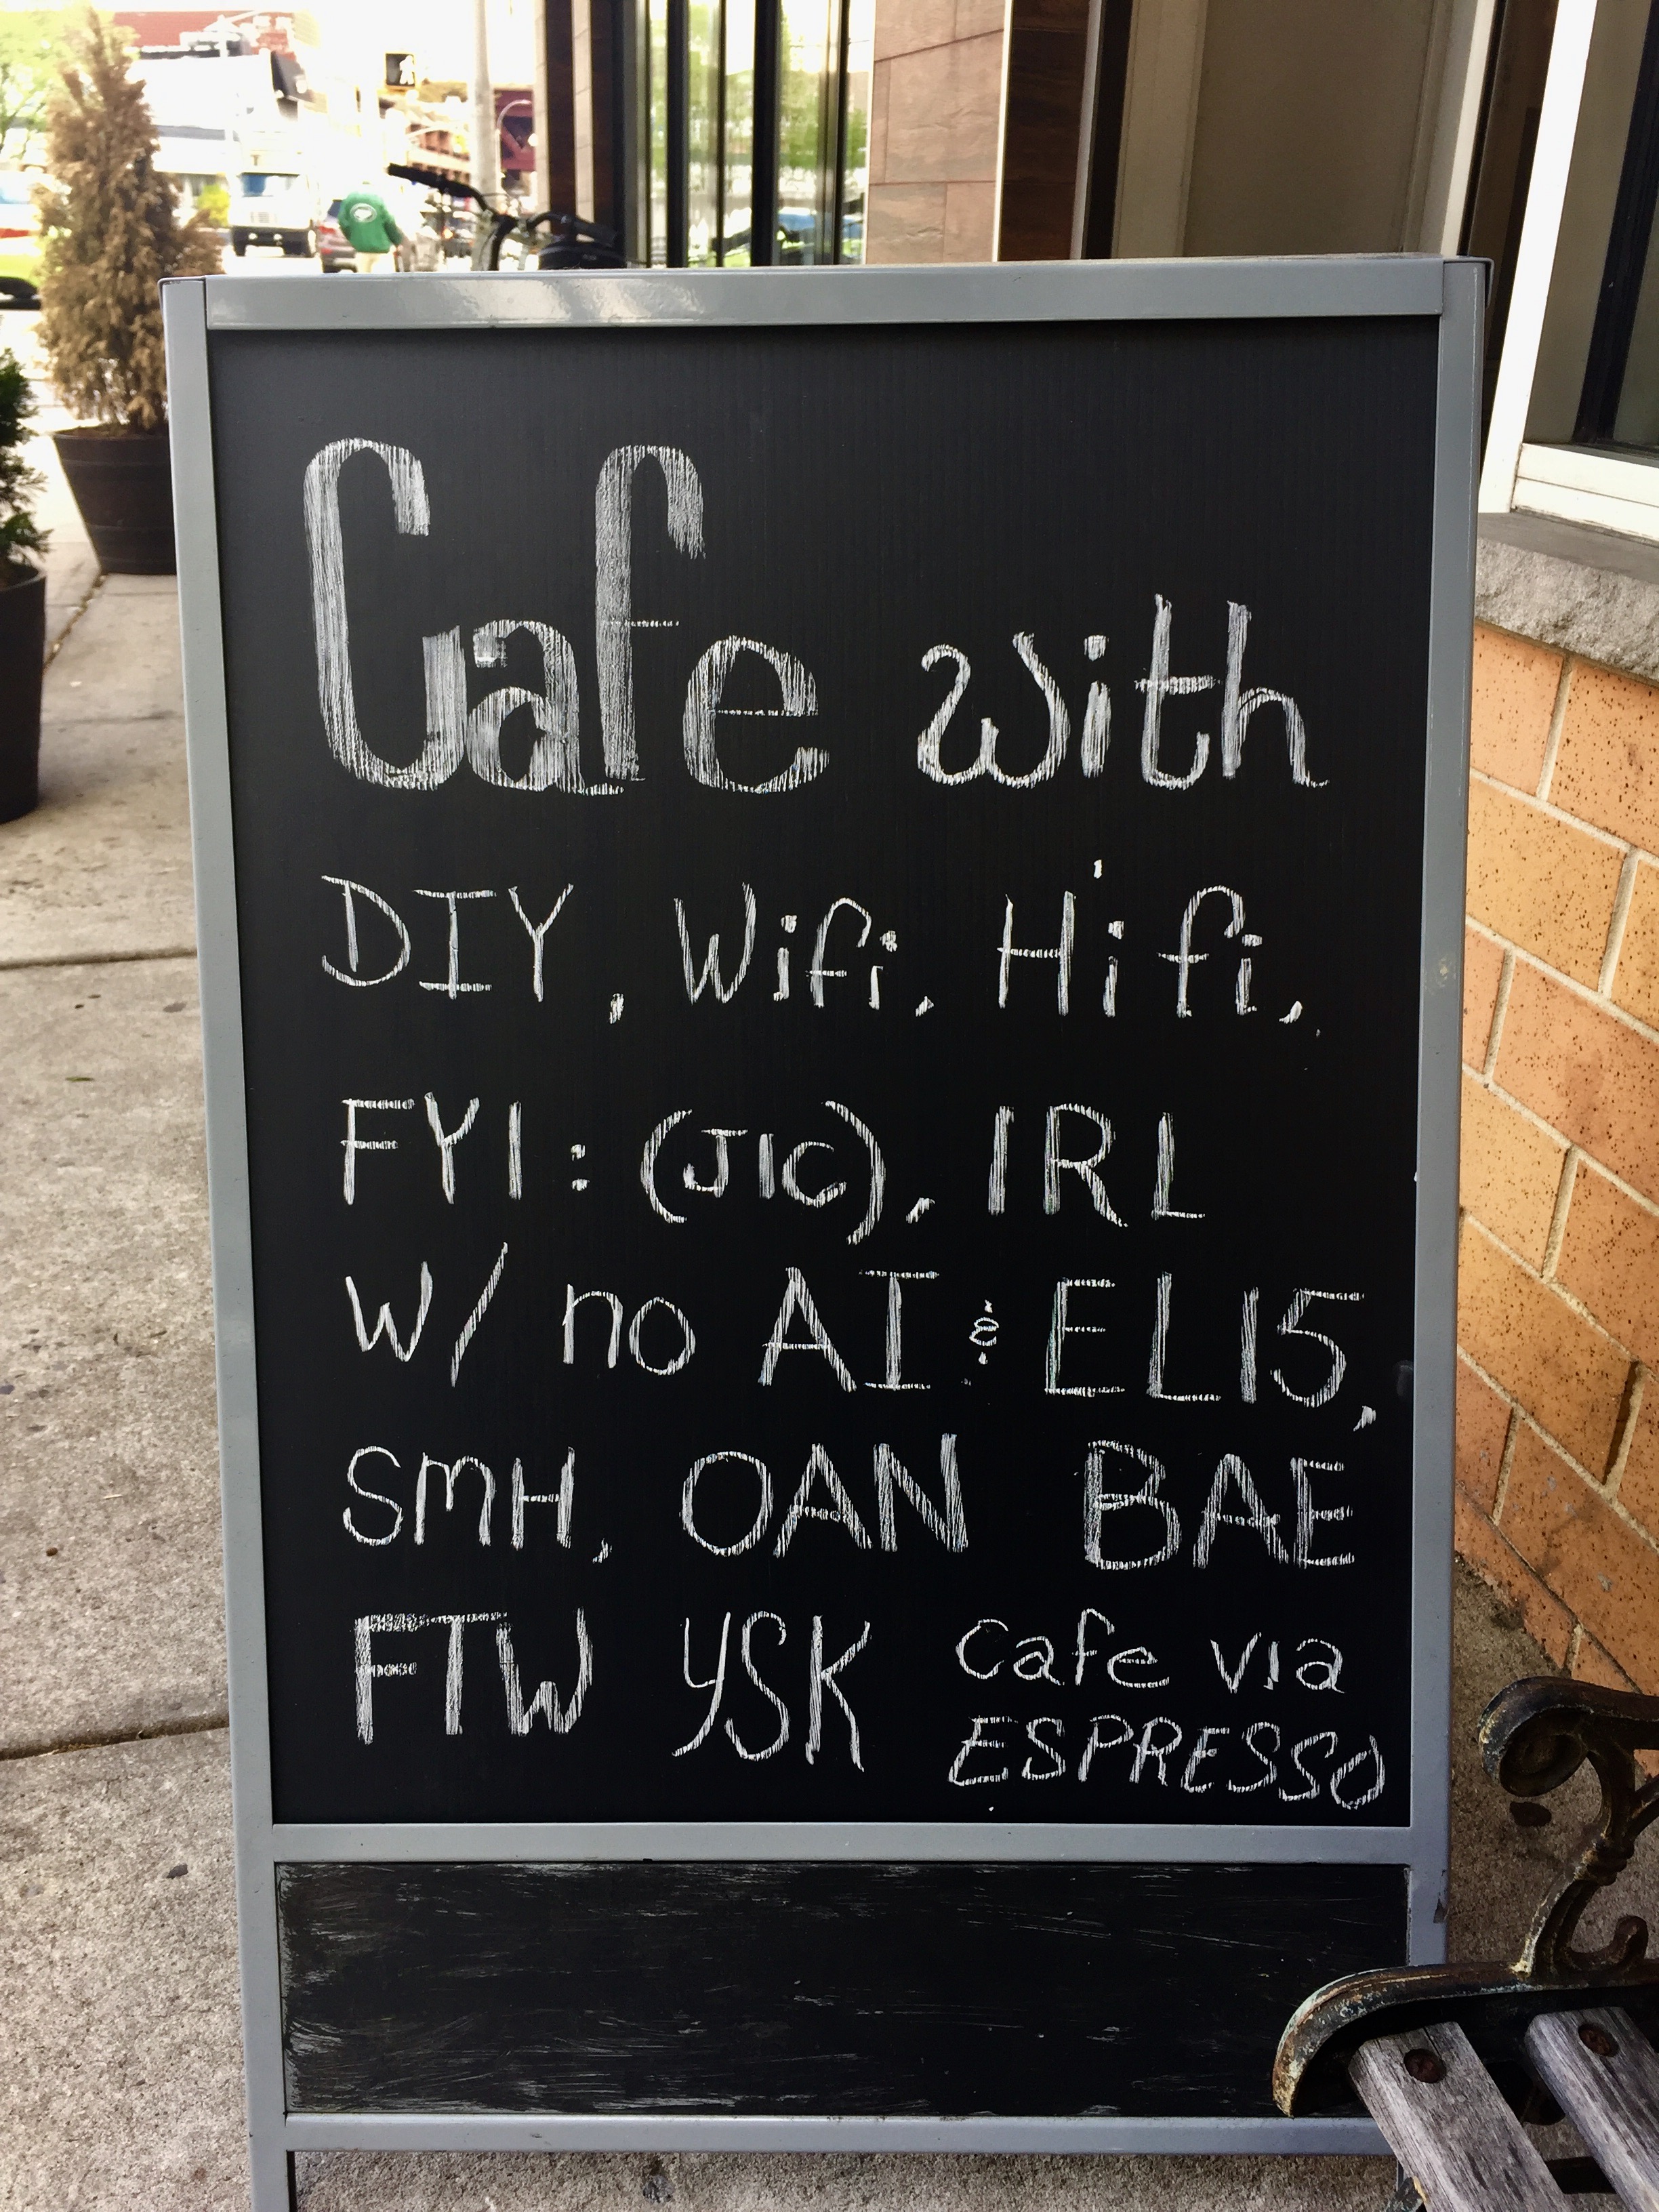 Cafe with
DIY, Wifi, Hifi,
FYI: (JIC), IRL
W/ no AI & ELI5,
SMH, OAN BAE
FTW YSK Cafe via
ESPRESSO